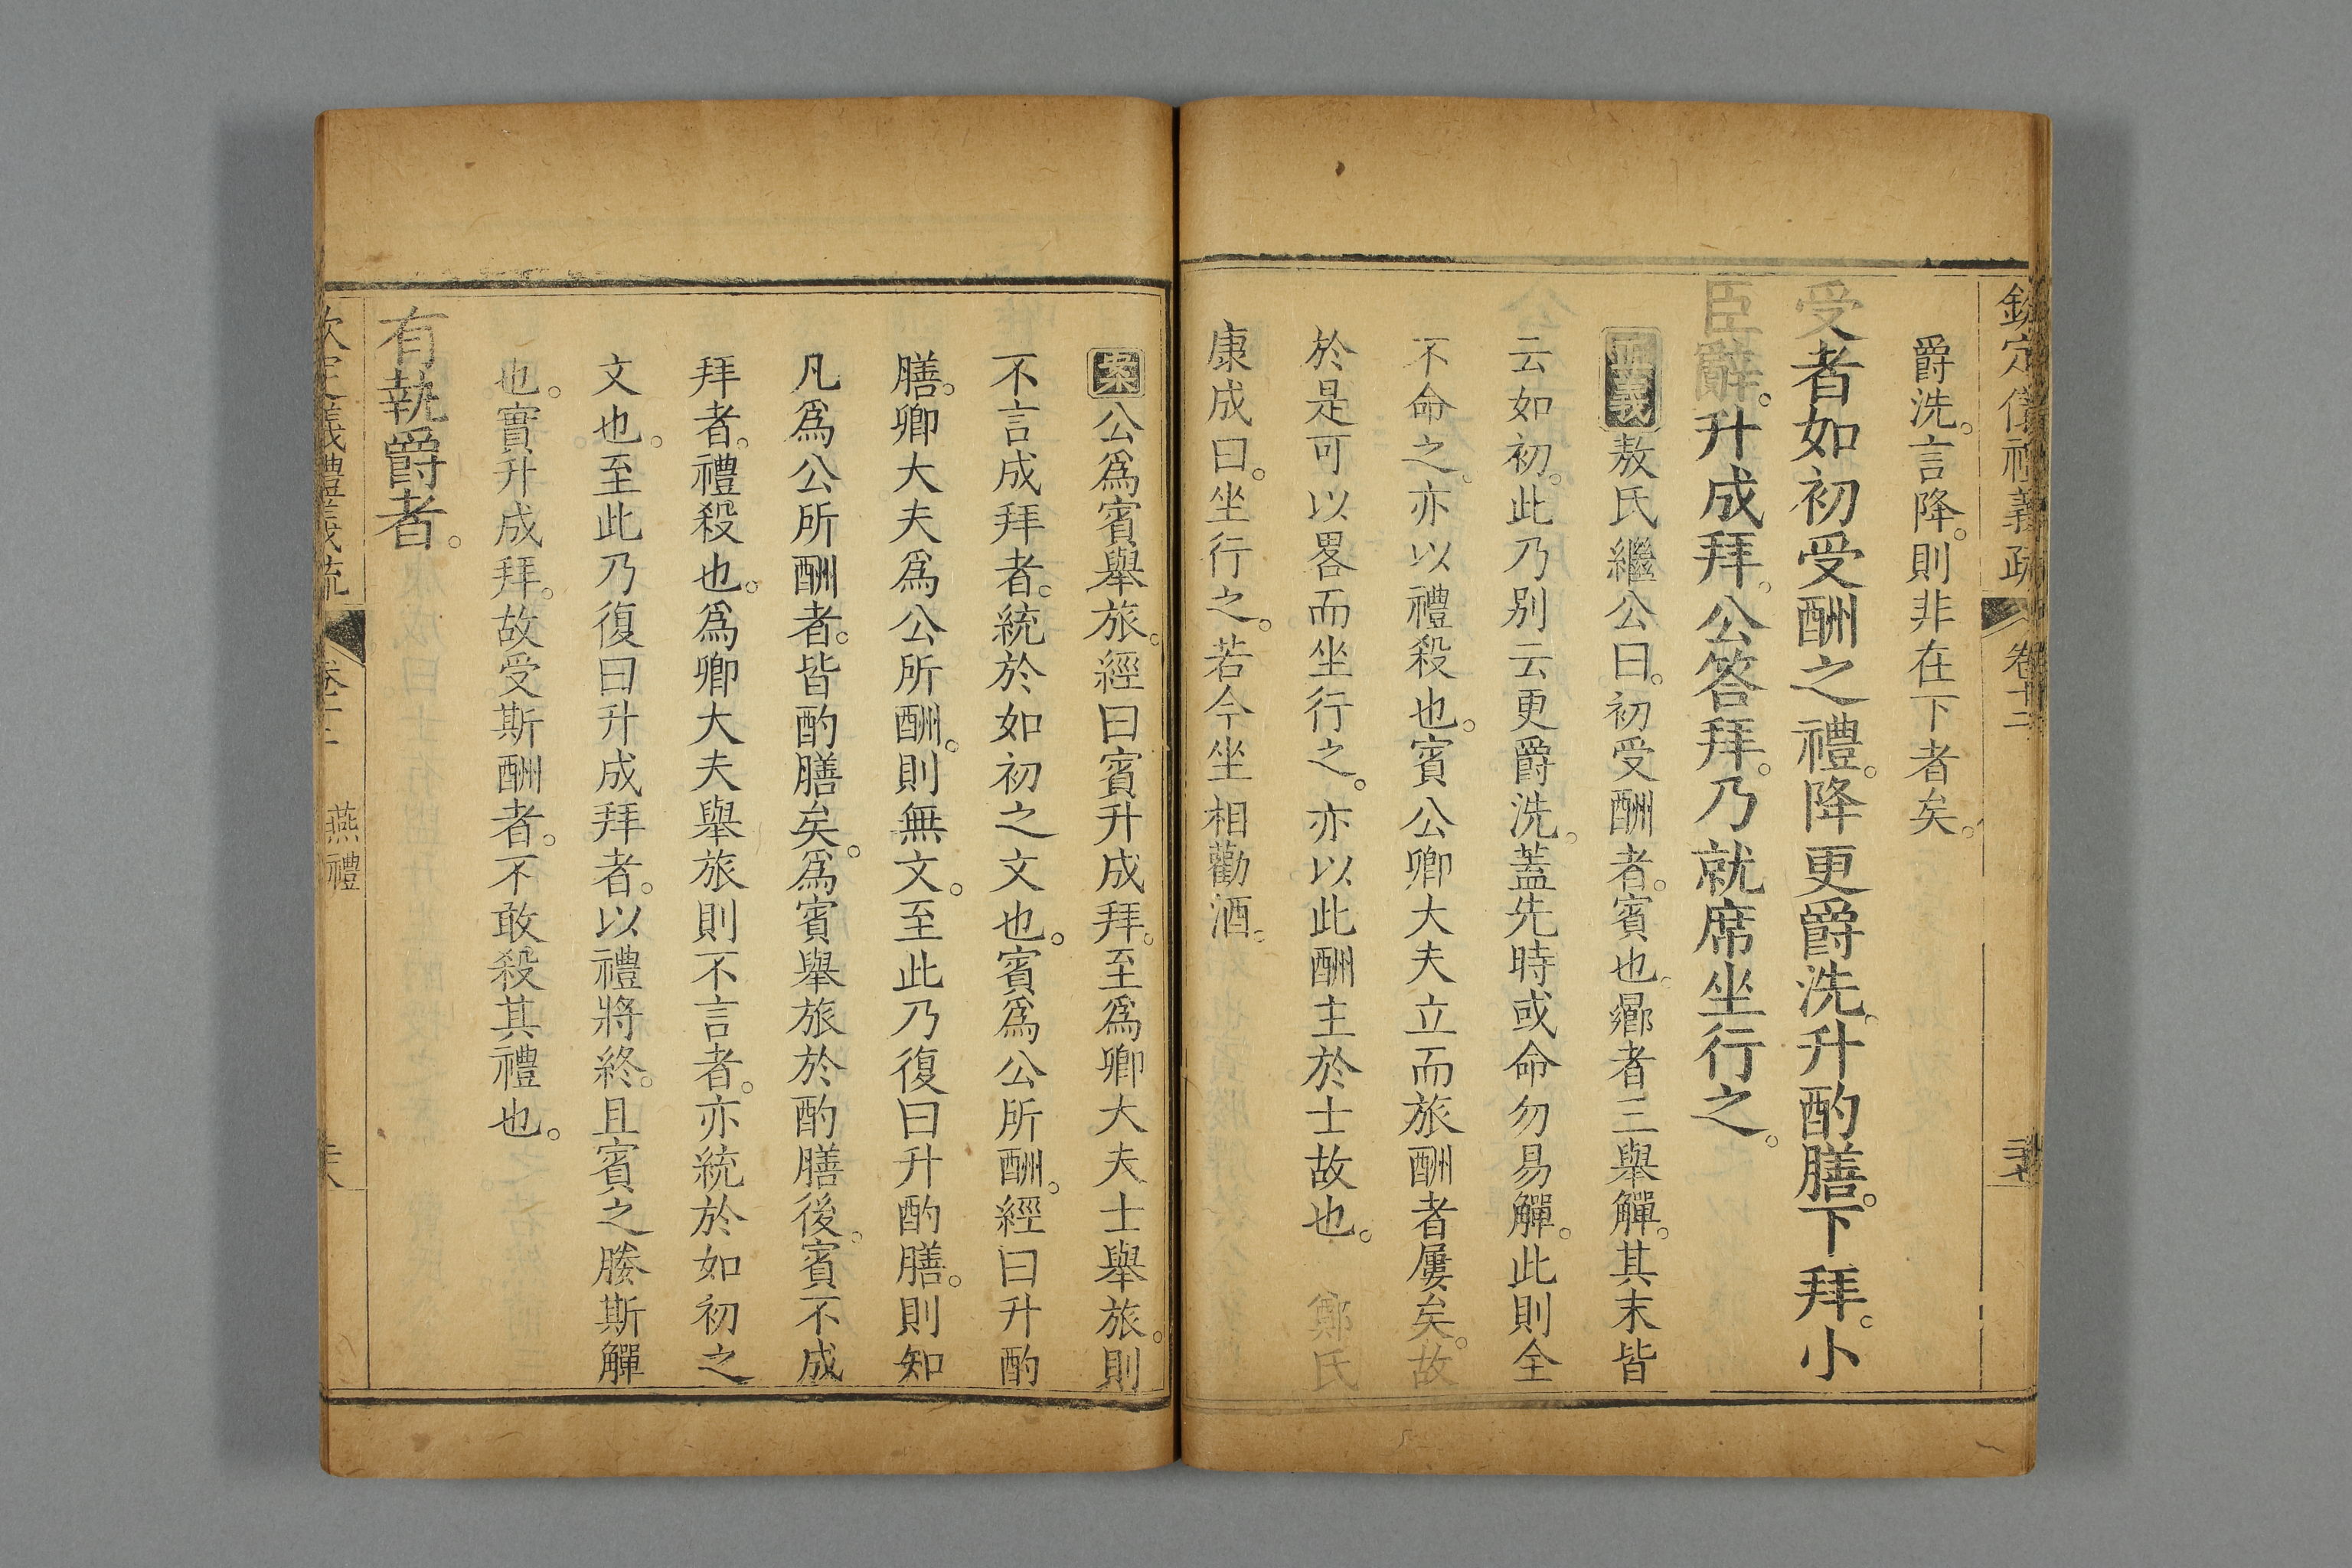 欽定儀禮義疏 卷十二
爵洗。言降。則非在下者矣。
受者如初受酬之禮。降更爵洗。升酌膳。下拜。小
臣辭。升成拜。公答拜。乃就席坐行之。
正義敖氏繼公曰。初受酬者。賓也。曏者三舉觶。其末皆
云如初。此乃別云更爵洗。蓋先時或命勿易觶。此則全
不命之。亦以禮殺也。賓公卿大夫立而旅酬者屢矣。故
於是可以畧而坐行之。亦以此酬主於士故也。 鄭氏
康成曰。坐行之。若今坐相勸酒。
案公為賓舉旅。經曰賓升成拜。至為卿大夫士舉旅。則
不言成拜者。統於如初之文也。賓為公所酬。經曰升酌
膳。卿大夫為公所酬。則無文。至此乃復曰升酌膳。則知
凡為公所酬者。皆酌膳矣。為賓舉旅於酌膳後。賓不成
拜者。禮殺也。為卿大夫舉旅則不言者。亦統於如初之
文也。至此乃復曰升成拜者。以禮將終。且賓之媵斯觶
也。賓升成拜。故受斯酬者。不敢殺其禮也。
有執爵者。
欽定儀禮義疏 卷十二 燕禮